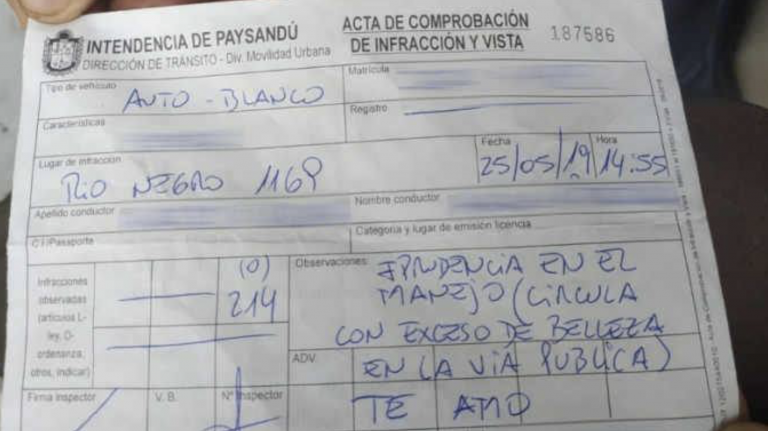 INTENDENCIA DE PAYSANDÚ
DIRECCIÓN DE TRÁNSITO - Div. Movilidad Urbana
ACTA DE COMPROBACIÓN
DE INFRACCIÓN Y VISTA
187586
Tipo de vehículo
AUTO - BLANCO
Matrícula
Características
Registro
Lugar de infracción
RIO NEGRO 1169
Fecha
25/05/19
Hora
14:55
Apellido conductor
Nombre conductor
C.I/Pasaporte
Categoría y lugar de emisión licencia
Infracciones
observadas
(artículos L-
ley, D-
ordenanza,
otros, indicar)
(0)
214
Observaciones:
IPRUDENCIA EN EL
MANEJO (CIRCULA
CON EXCESO DE BELLEZA
ADV.
EN LA VIA PUBLICA)
TE AMO
Firma Inspector
V. B.
Nº Inspector